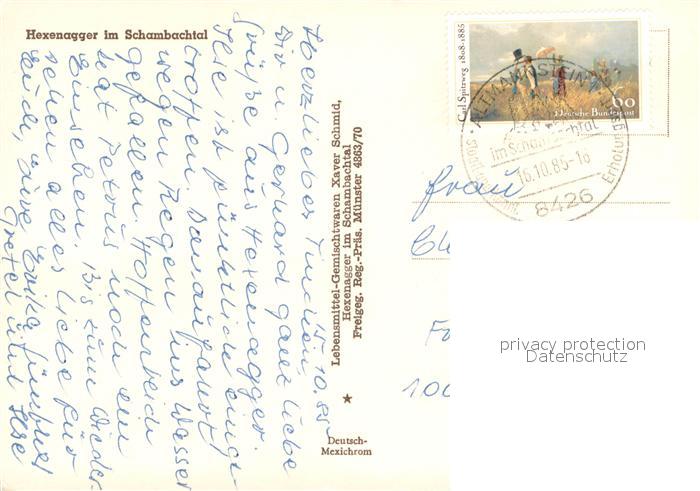 Hexenagger im Schambachtal
15.10.85
Herzliebes
Dir u. Gerhard ganz liebe
Grüße aus Hexenagger.
Ilse ist pünktlich einge-
troffen. Donaufahrt
wegen Regen ins Wasser
gefallen. Hoffentlich
hat Petrus noch ein
Einsehen. Bis zum Wieder-
sehen alles Liebe für
Euch, Eure
Gretel und Ilse
Lebensmittel-Gemischtwaren Xaver Schmid,
Hexenagger im Schambachtal
Freigeg. Reg.-Präs. Münster 4863/70
Deutsch-
Mexichrom
Carl Spitzweg 1808-1885
60
Deutsche Bundespost
ALTMANNSTEIN
im Schambachtal
15.10.85-16
8426
Frau
100
privacy protection
Datenschutz